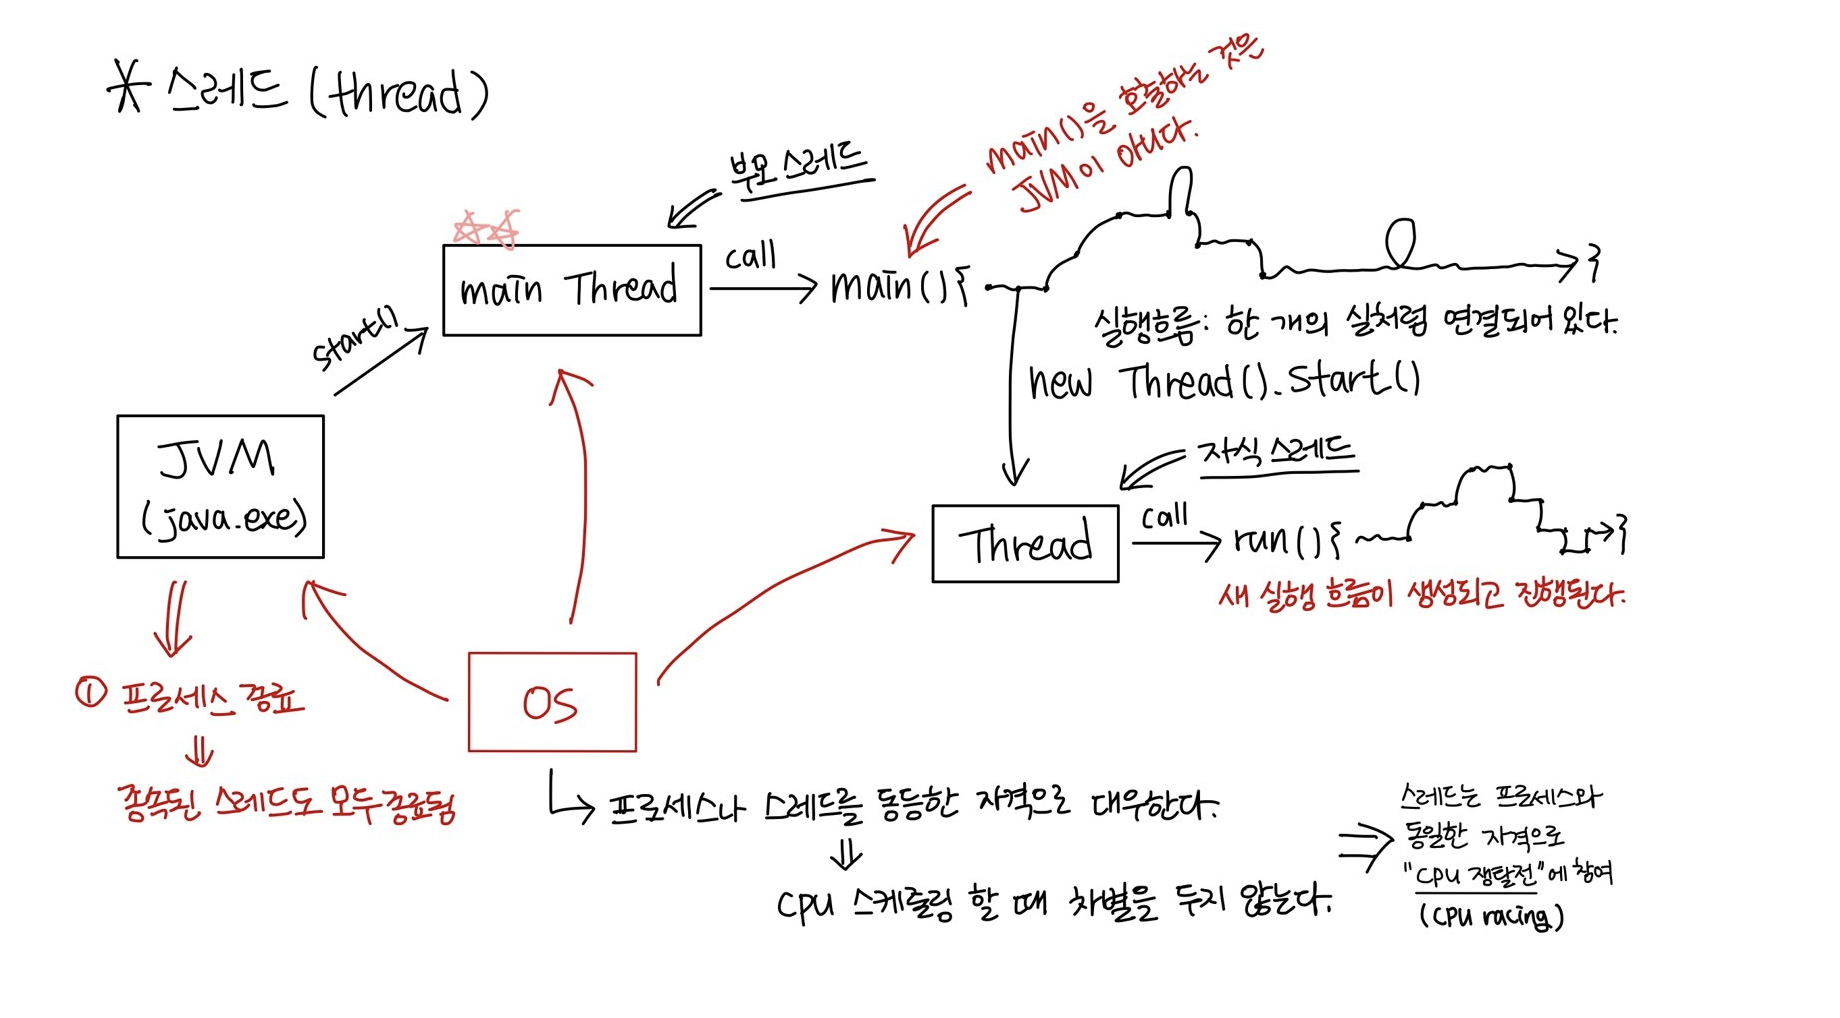 * 스레드 (thread)
main()을 호출하는 것은
JVM이 아니다.
부모 스레드
main Thread
call
main(){
}
실행흐름: 한 개의 실처럼 연결되어 있다.
start()
new Thread().start()
JVM
(java.exe)
자식 스레드
Thread
call
run(){
}
새 실행 흐름이 생성되고 진행된다.
OS
① 프로세스 종료
⇓
종속된 스레드도 모두 종료됨
프로세스나 스레드를 동등한 자격으로 대우한다.
⇓
CPU 스케줄링 할 때 차별을 두지 않는다.
⇒
스레드는 프로세스와
동일한 자격으로
"CPU 쟁탈전"에 참여
(CPU racing)